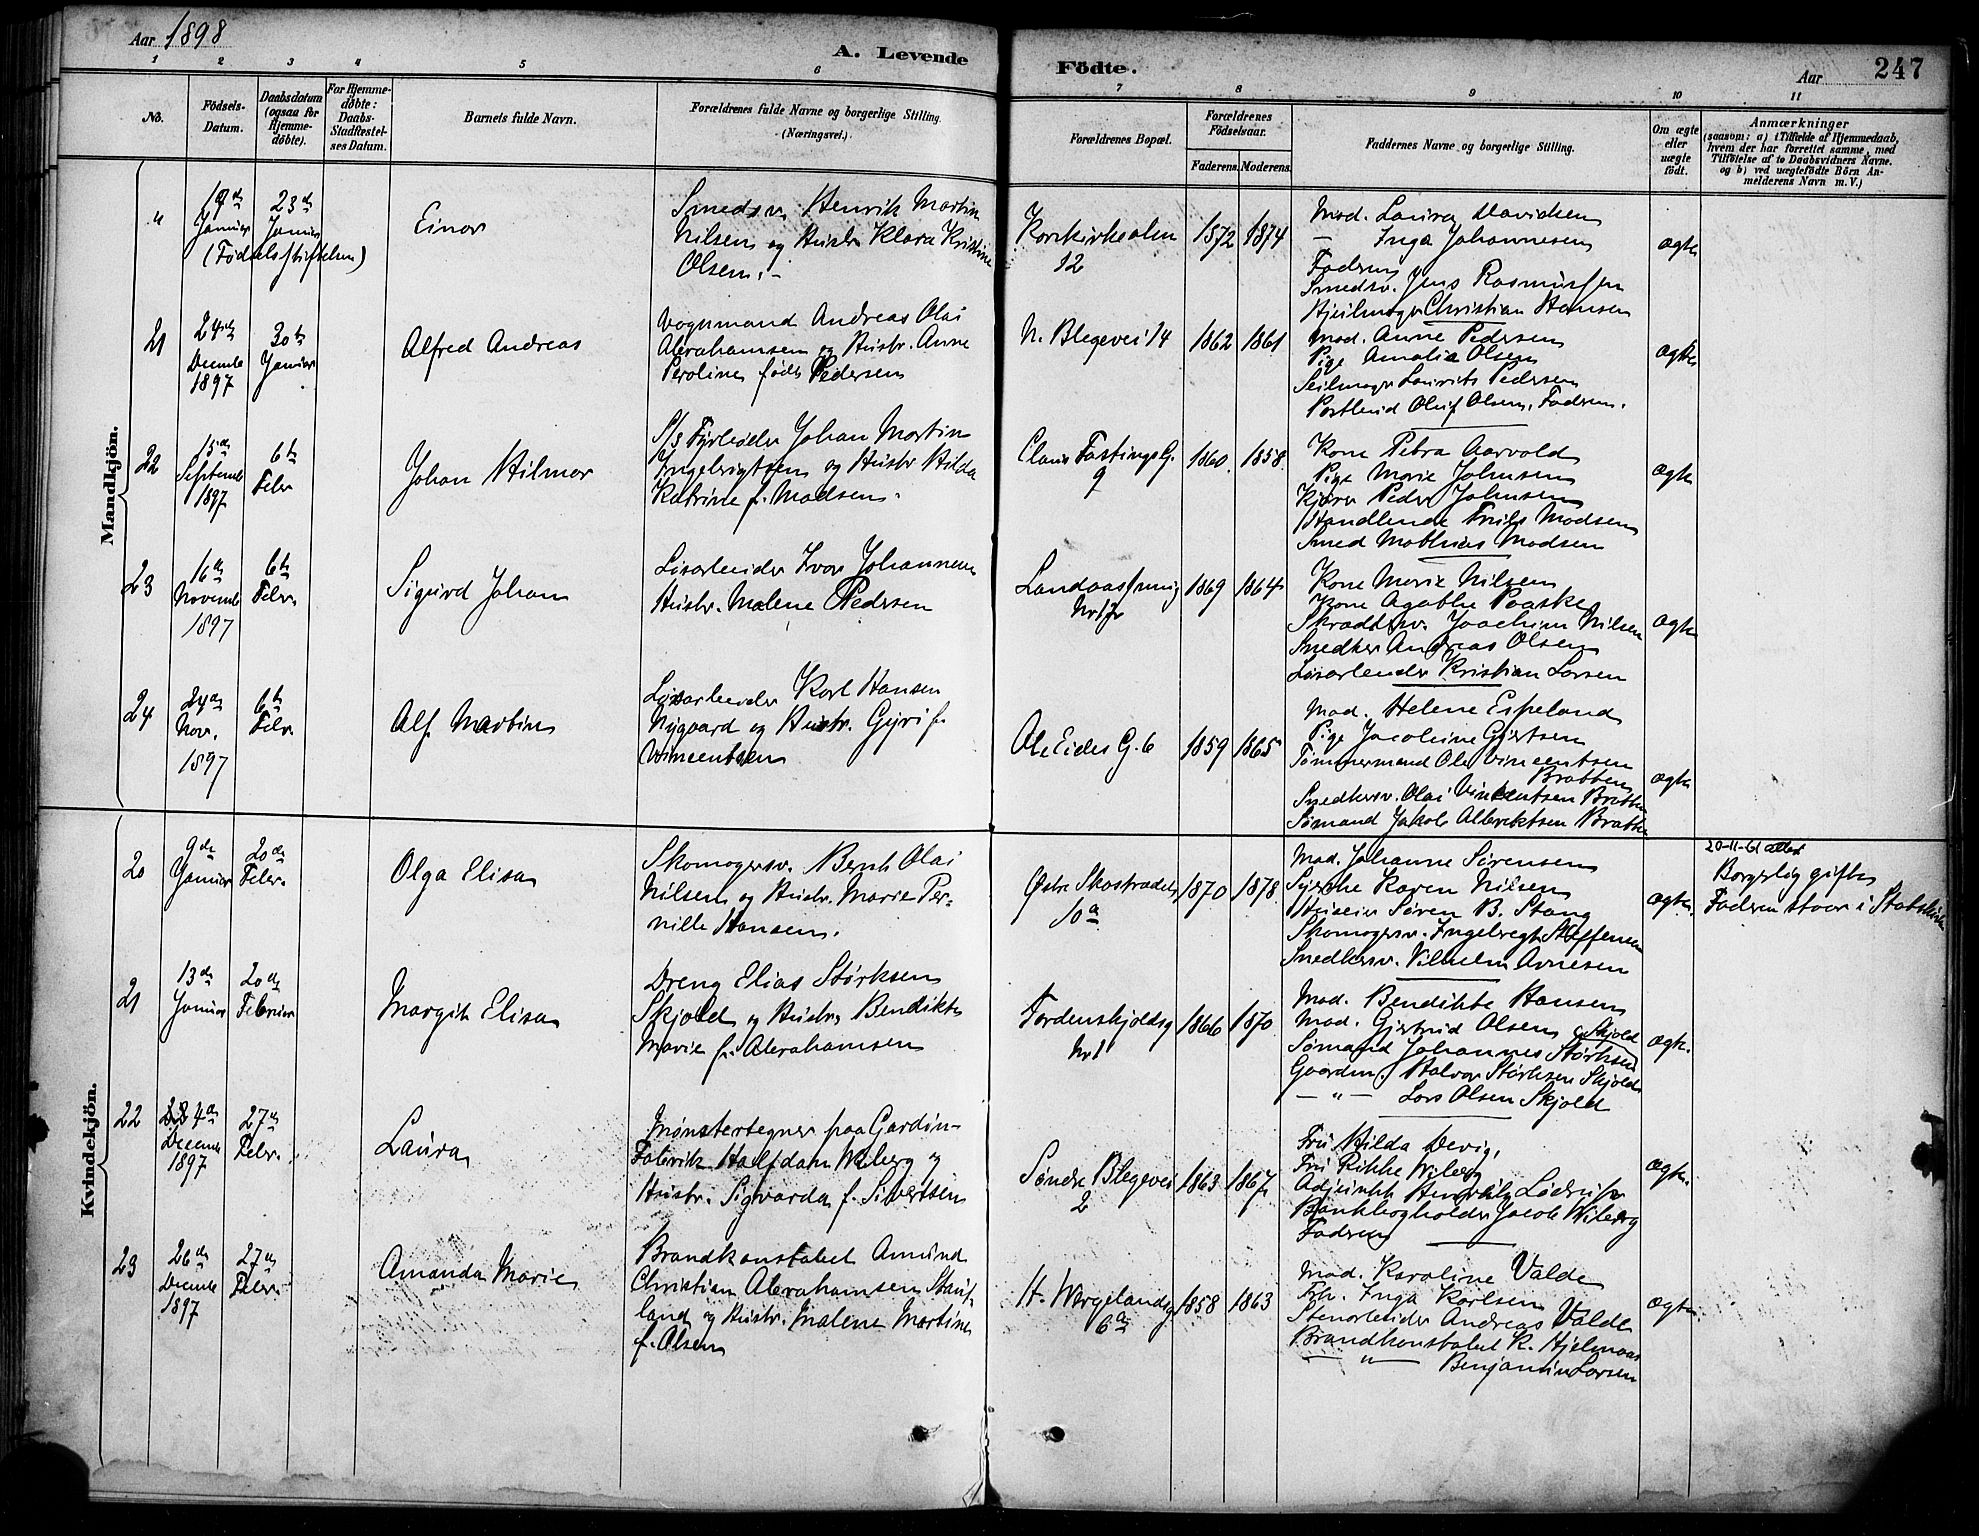 Aar 1898
A. Levende Födte.
Aar 247
1 2 3 4 5 6 7 8 9 10 11
No.
Födsels-
Datum.
Daabsdatum
(ogsaa for
Hjemme-
døbte).
For Hjemme-
døbte:
Daabs-
Stadfæstel-
ses Datum.
Barnets fulde Navn.
Forældrenes fulde Navne og borgerlige Stilling.
(Næringsvei.)
Forældrenes Bopæl.
Forældrenes
Födselsaar.
Faderens. Moderens.
Faddernes Navne og borgerlige Stilling.
Om ægte
eller
uægte
födt.
Anmærkninger
(saasom: a) i Tilfælde af Hjemmedaab,
hvem der har forrettet samme, med
Tilföielse af to Daabsvidners Navne.
og b) ved uægtefödte Börn An-
melderens Navn m. V.)
Mandkjön.
"
19de Januar
23de Januar
(Fødselsstiftelsen)
Einar
Smedsv. Henrik Martin
Nilsen og Hustr. Klara Kristine
Olsen.
Korskirkealm
12
1872 1874
Mad. Laura Davidsen
— Inga Johannesen
Faderen
Smedsv. Jens Rasmussen
Christian Hansen
ægte
21
24de
Decemb
1897
30te
Januar
Alfred Andreas
Vognmand Andreas Olai
Abrahamsen og Hustr. Anne
Peroline født Pedersen
N. Blegevei 14
1862 1861
Mad. Anne Pedersen
Pige Amalia Olsen
Seilmager Laurits Pedersen
Postbud Oluf Olsen, Faderen.
ægte
22
15de
Septemb
1897
6te
Febr.
Johan Hilmar
S/s Fyrbøder Johan Martin
Ingebrigtsen og Hustr Hilda
Katrine f. Madsen.
Claus Fastings G.
9
1860. 1858.
Kone Petra Aarvold
Pige Marie Johnsen
Peder Johnsen
Handlende Madsen
Smed Mathias Madsen
ægte
23
16de
Novemb
1897
6te
Febr.
Sigurd Johan
Løsarbeider Ivar Johannesen
Hustr. Malene Pedersen
Nr 17
1869 1864
Kone Marie Nilsen
Kone Agathe Paaske
Skrædersv. Joachim Nilsen
Snedker Andreas Olsen
Løsarbeider Kristian Larsen
ægte
24
24de
Nov.
1897
6te
Febr.
Alf Martin
Løsarbeider Karl Hansen
Nygaard og Hustr. Gyri f.
Vincentsen
Ole Eides G. 6
1859 1865
Mad. Helene Espeland
Pige Jacobine Gjertsen
Tømmermand Ole Vincentsen
Bratten
Snedkersv. Olai Vincentsen Bratten
Sømand Jakob Albriktsen Bratten
ægte
Kvindekjön.
20
9de
Januar
20de
Febr.
Olga Elisa
Skomagersv. Bernh Olai
Nilsen og Hustr. Marie Per-
nille Hansen.
Østre Skostrædet
10a
1870 1878.
Mad. Johanne Sørensen
Karen Nilsen
Huseier Søren B. Stang
Skomagersv. Ingebregt Steffensen
Snedkersv. Vilhelm Arnesen
ægte.
20-11-61 attest
Borgerlig gifte
Faderen staar i Statskirken
21
13de
Januar
20de
Februar
Margit Elisa
Dreng Elias Størksen
Skjold og Hustr. Bendikte
Marie f. Abrahamsen
Tordenskjoldsg
Nr 1
1866 1870.
Mad. Bendikte Hansen
Mad. Gjertrud Olsen
Sømand Johannes Størksen Skjold
Gaardm. Halvor Størksen Skjold
— " — Lars Olsen Skjold
ægte.
22
4de
Decemb
1897
27de
Febr.
Laura
Mønstertegner paa Gardin-
Fabrik Halfdan Wiberg og
Hustr. Sigvarda f. Sivertsen
Søndre Blegevei
2
1863 1867
Fru Hilda Devig,
Fru Rikke Wiberg
Adjunkt
Bankbogholder Jacob Wiberg
Faderen
ægte.
23
26de
Decemb
1897
27de
Febr.
Amanda Marie
Brandkonstabel Amund
Christian Abrahamsen Stauf-
land og Hustr. Malene Martine
f. Olsen
H. Wergelandsg
6a
1858 1863
Mad. Karoline Valde
Frk. Inga Karlsen
Stenarbeider Andreas Valde
Brandkonstabel K. Hjelmaas
— " — Benjamin Larsen
ægte.